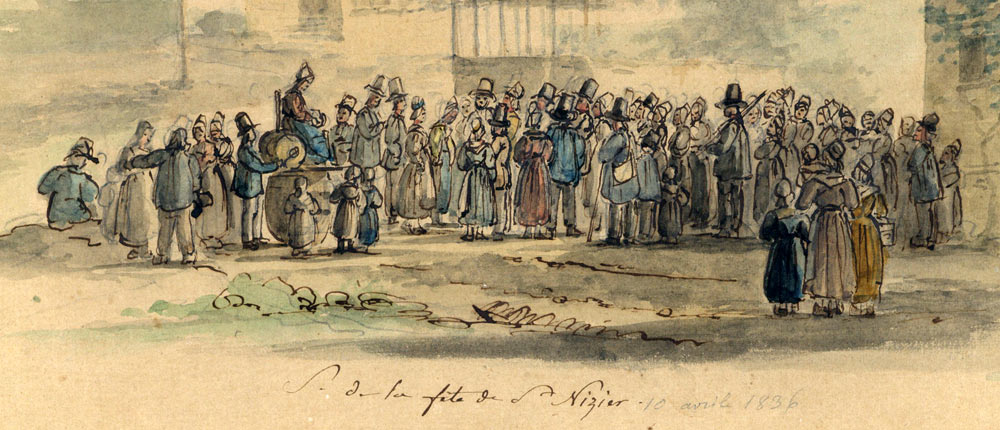 S. de la fête de St Nizier. 10 avrile 1836